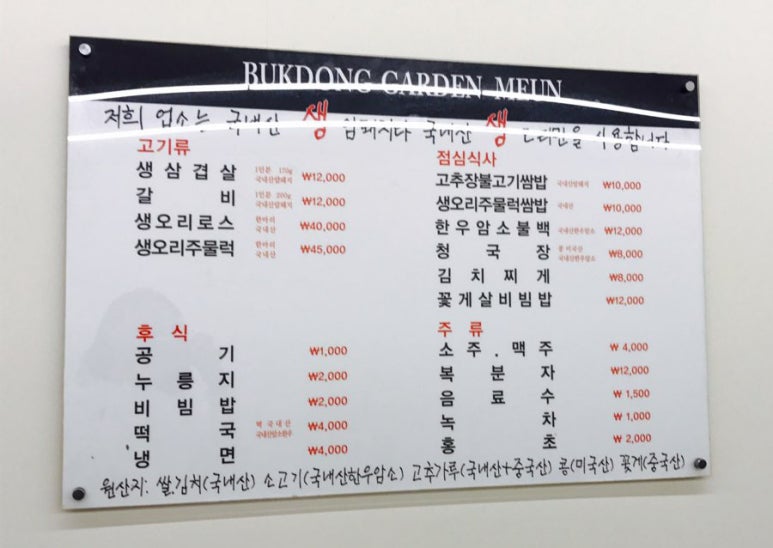 BUKDONG GARDEN MEUN
저희 업소는 국내산 생 암퇘지와 국내산 생 오리만을 사용합니다
고기류
생삼겹살 1인분 170g 국내산암돼지 ₩12,000
갈비 1인분 200g 국내산암돼지 ₩12,000
생오리로스 한마리 국내산 ₩40,000
생오리주물럭 한마리 국내산 ₩45,000
점심식사
고추장불고기쌈밥 국내산암돼지 ₩10,000
생오리주물럭쌈밥 국내산 ₩10,000
한우암소불백 국내산한우암소 ₩12,000
청국장 콩 미국산 국내산한우암소 ₩8,000
김치찌게 ₩8,000
꽃게살비빔밥 ₩12,000
후식
공기 ₩1,000
누릉지 ₩2,000
비빔밥 ₩2,000
떡국 떡 국내산 국내산암소한우 ₩4,000
냉면 ₩4,000
주류
소주.맥주 ₩ 4,000
복분자 ₩12,000
음료수 ₩ 1,500
녹차 ₩ 1,000
홍초 ₩ 2,000
원산지: 쌀.김치(국내산) 소고기(국내산한우암소) 고추가루(국내산+중국산) 콩(미국산) 꽃게(중국산)